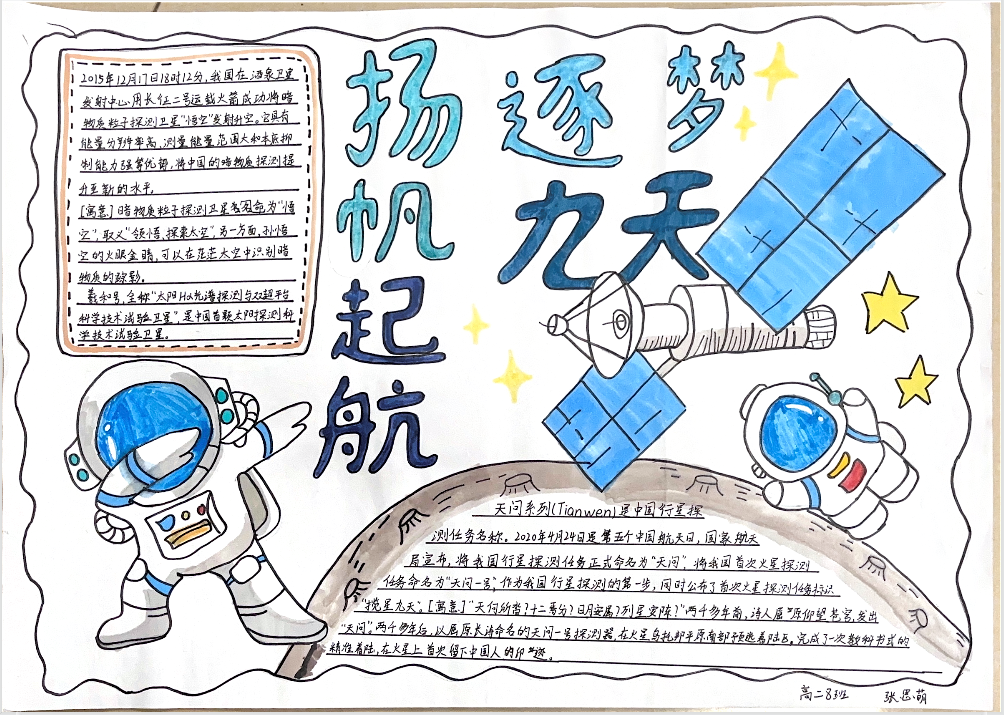 扬帆起航
逐梦
九天
2015年12月17日18时12分,我国在酒泉卫星
发射中心用长征二号运载火箭成功将暗
物质粒子探测卫星"悟空"发射升空。它具有
能量分辨率高,测量能量范围大和本底抑
制能力强等优势,将中国的暗物质探测提
升至新的水平。
[寓意]暗物质粒子探测卫星命为"悟
空",取义"领悟、探索太空",另一方面,孙悟
空的火眼金睛,可以在茫茫太空中识别暗
物质的踪影。
羲和号,全称"太阳Hα光谱探测与双超平台
科学技术试验卫星",是中国首颗太阳探测科
学技术试验卫星。
天问系列(Tianwen)是中国行星探
测任务名称。2020年4月24日是第五个中国航天日,国家航天
局宣布,将我国行星探测任务正式命名为"天问",将我国首次火星探测
任务命名为"天问一号",作为我国行星探测的第一步,同时公布了首次火星探测任务标识
"揽星九天"。[寓意]"天何所沓?十二焉分?日月安属?列星安陈?"两千多年前,诗人屈原仰望苍穹,发出
"天问",两千多年后,以屈原长诗命名的天问一号探测器,在火星乌托邦平原南部预选着陆区。完成了一次教科书式的
精准着陆,在火星上首次留下中国人的印迹。
高二8班 张思萌